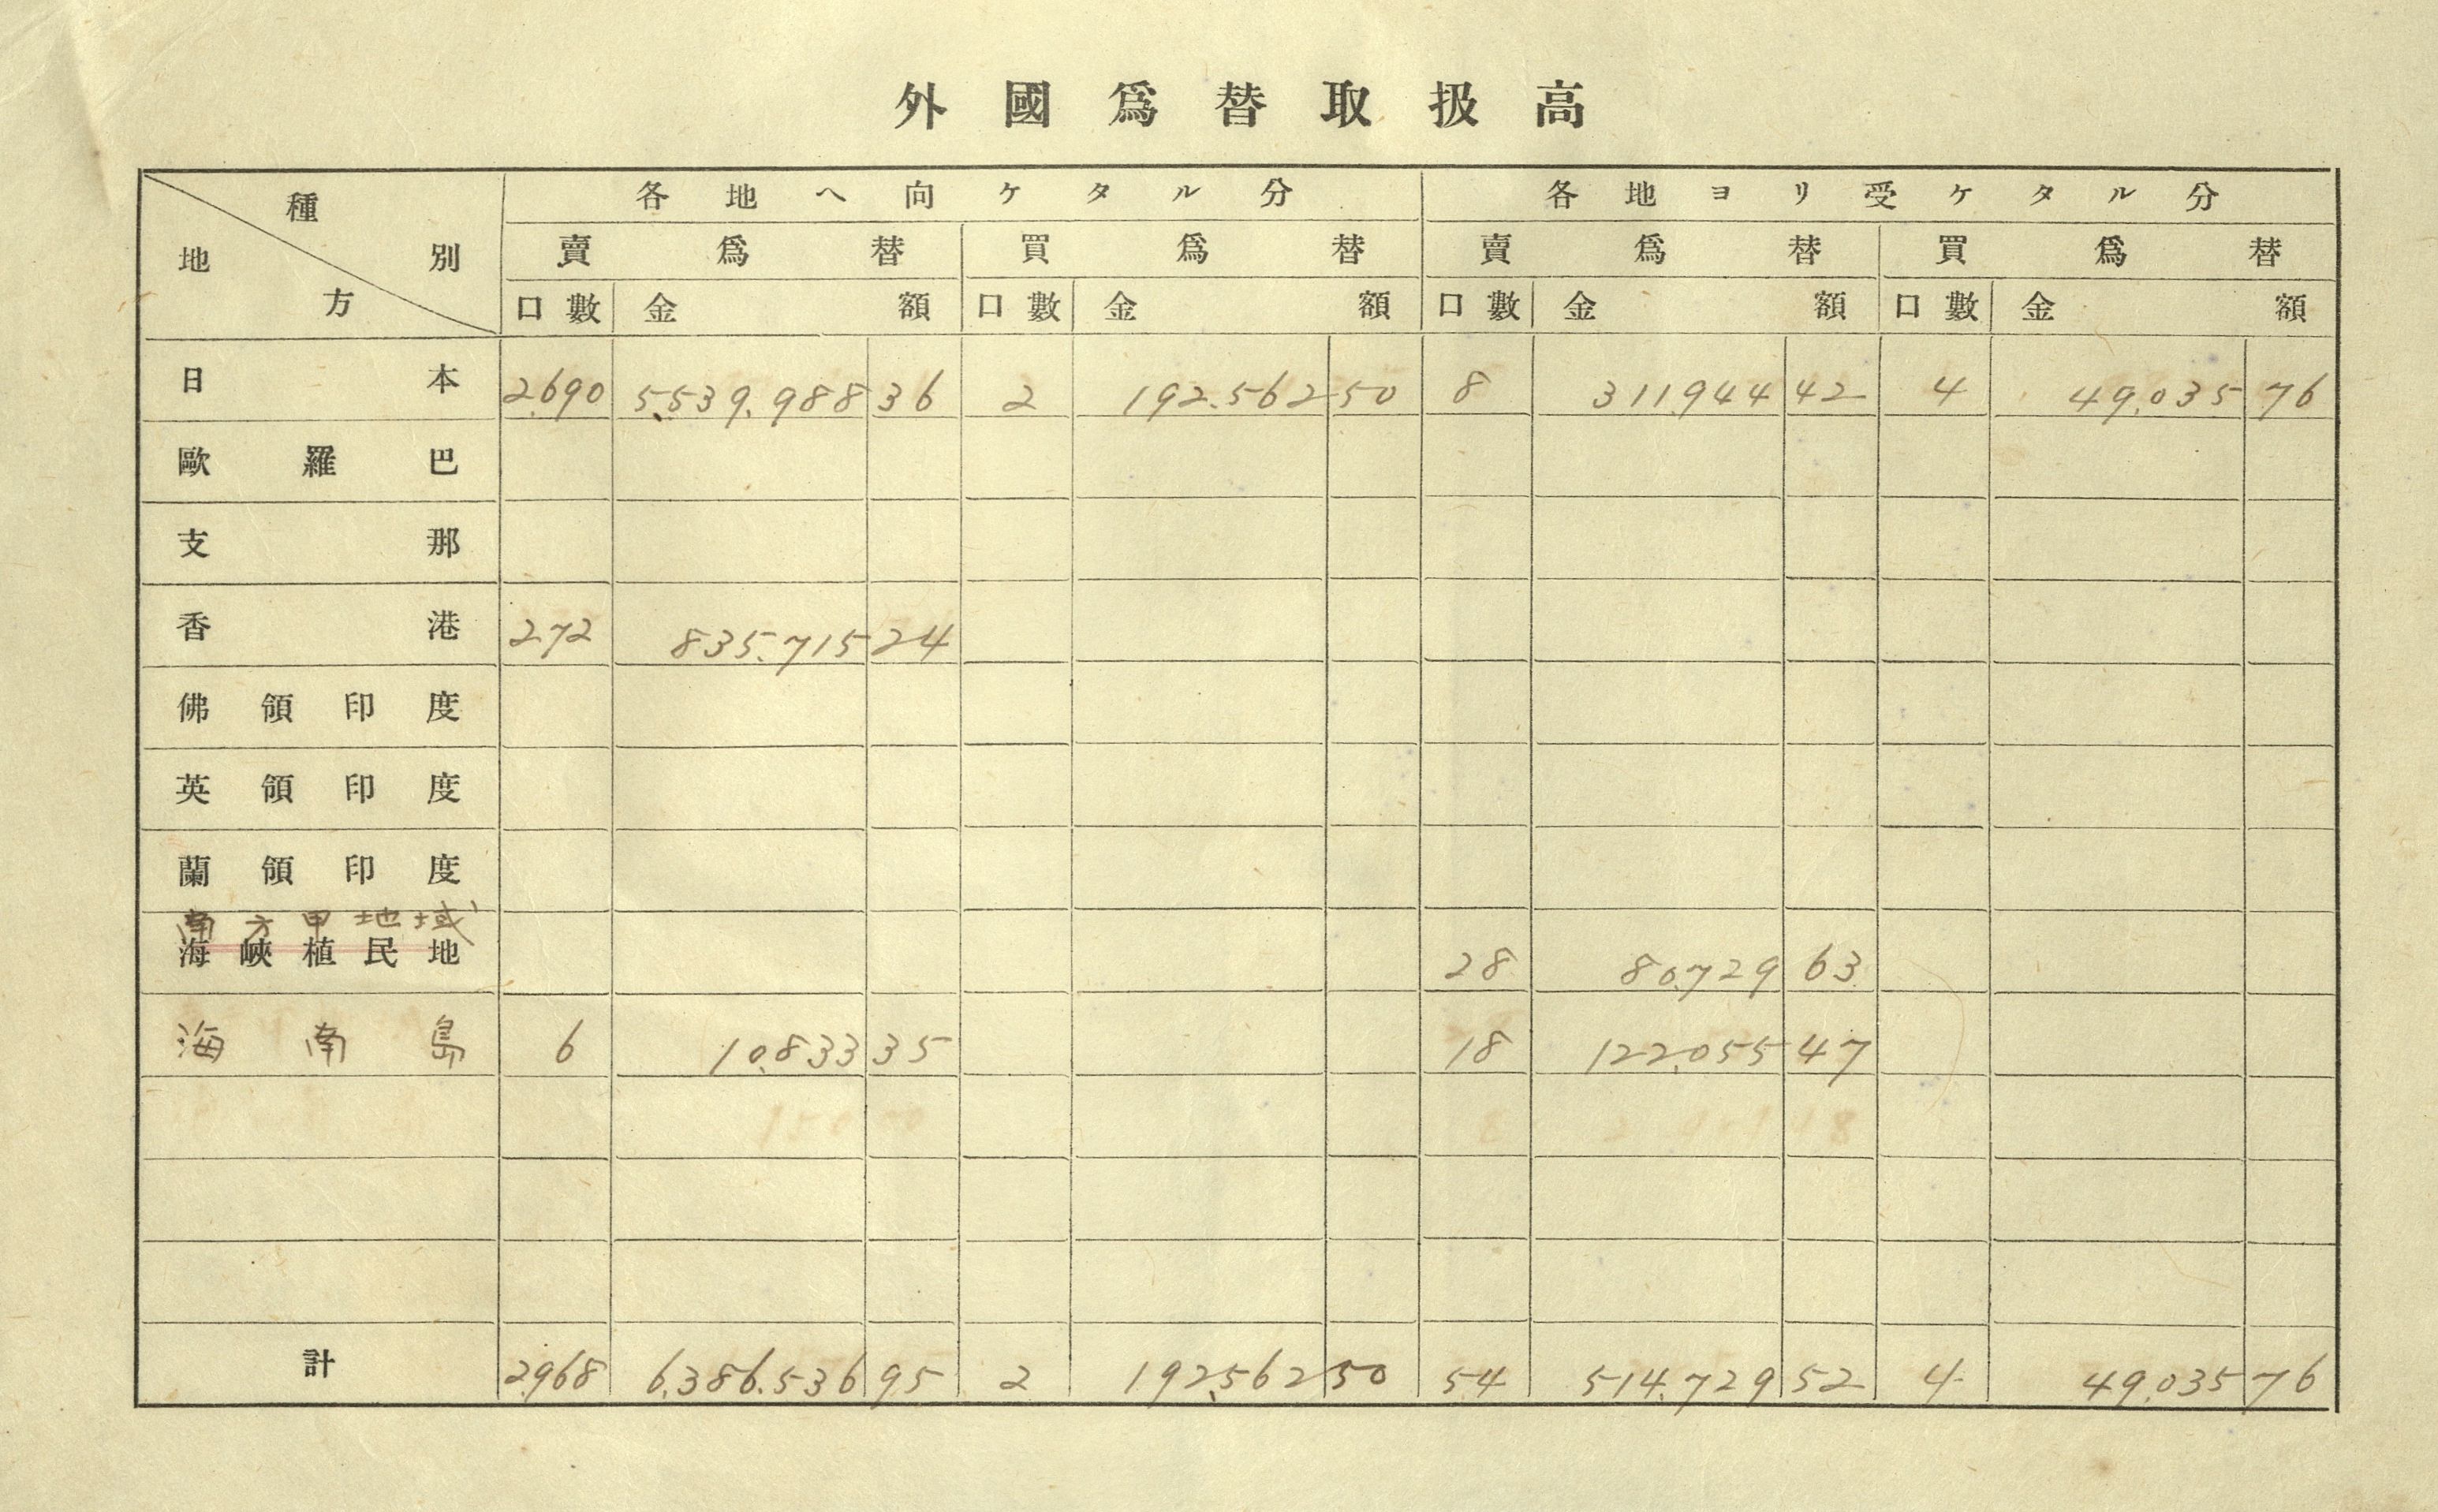 外國爲替取扱高
種別 地方 各地ヘ向ケタル分 各地ヨリ受ケタル分
賣爲替 買爲替 賣爲替 買爲替
口數 金額 口數 金額 口數 金額 口數 金額
日本 2,690 5,539,988 36 2 192,562 50 8 311,944 42 4 49,035 76
歐羅巴
支那
香港 272 835,715 24
佛領印度
英領印度
蘭領印度
南方甲地域
海峽植民地 28 80,729 63
海南島 6 10,833 35 18 122,055 47
計 2,968 6,386,536 95 2 192,562 50 54 514,729 52 4 49,035 76